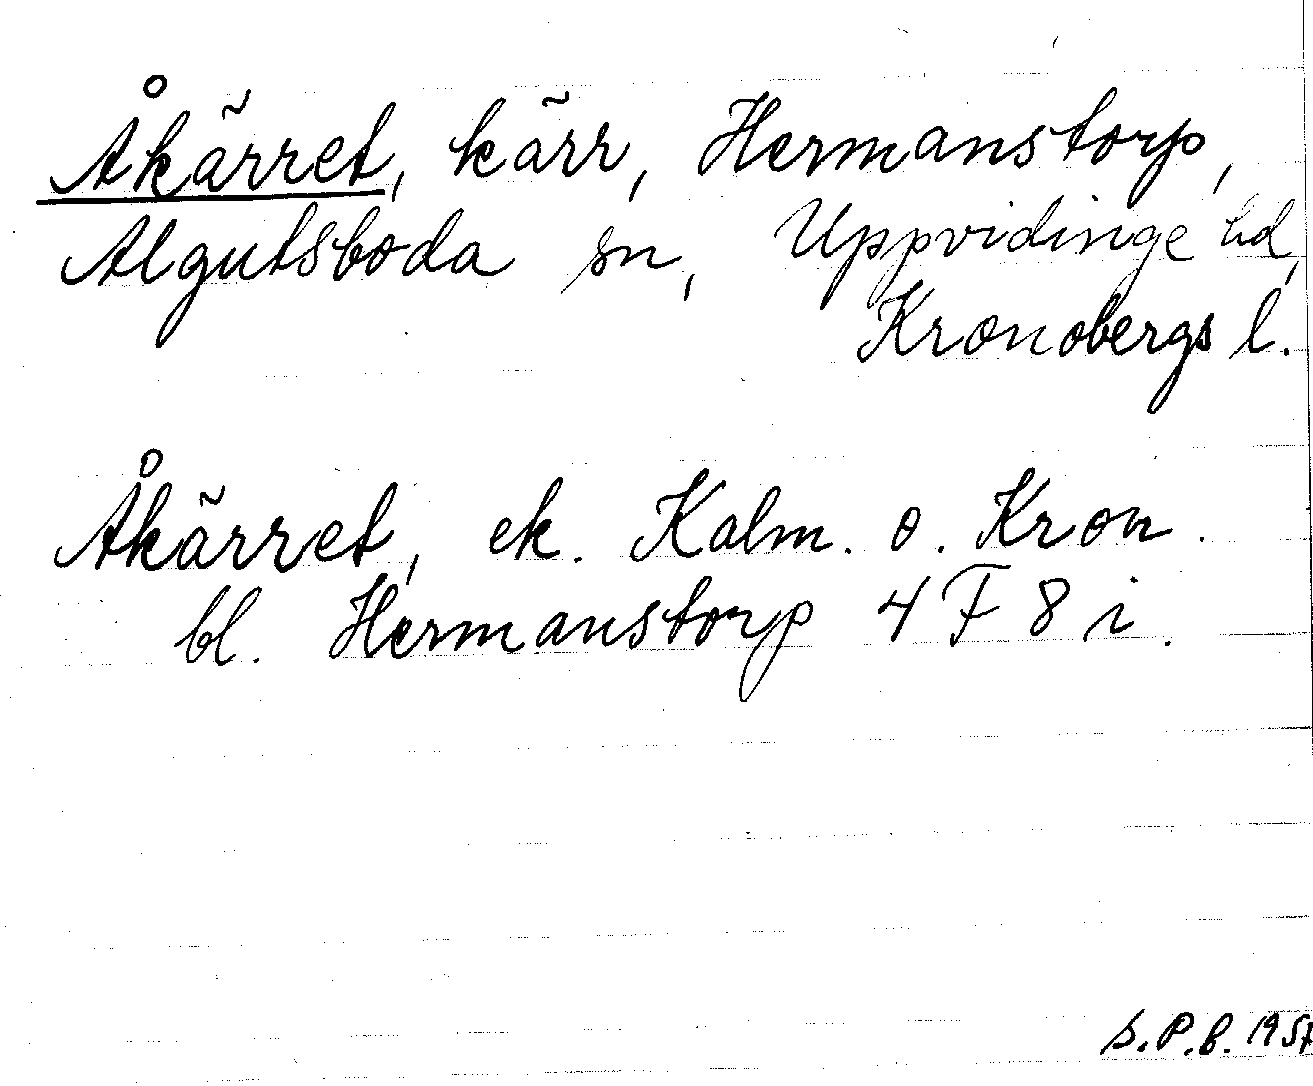 Åkärret, kärr, Hermanstorp,
Algutsboda sn, Uppvidinge hd,
Kronobergs l.
Åkärret, ek. Kalm. o. Kron.
bl. Hermanstorp 4 F 8 i.
S.P.B.